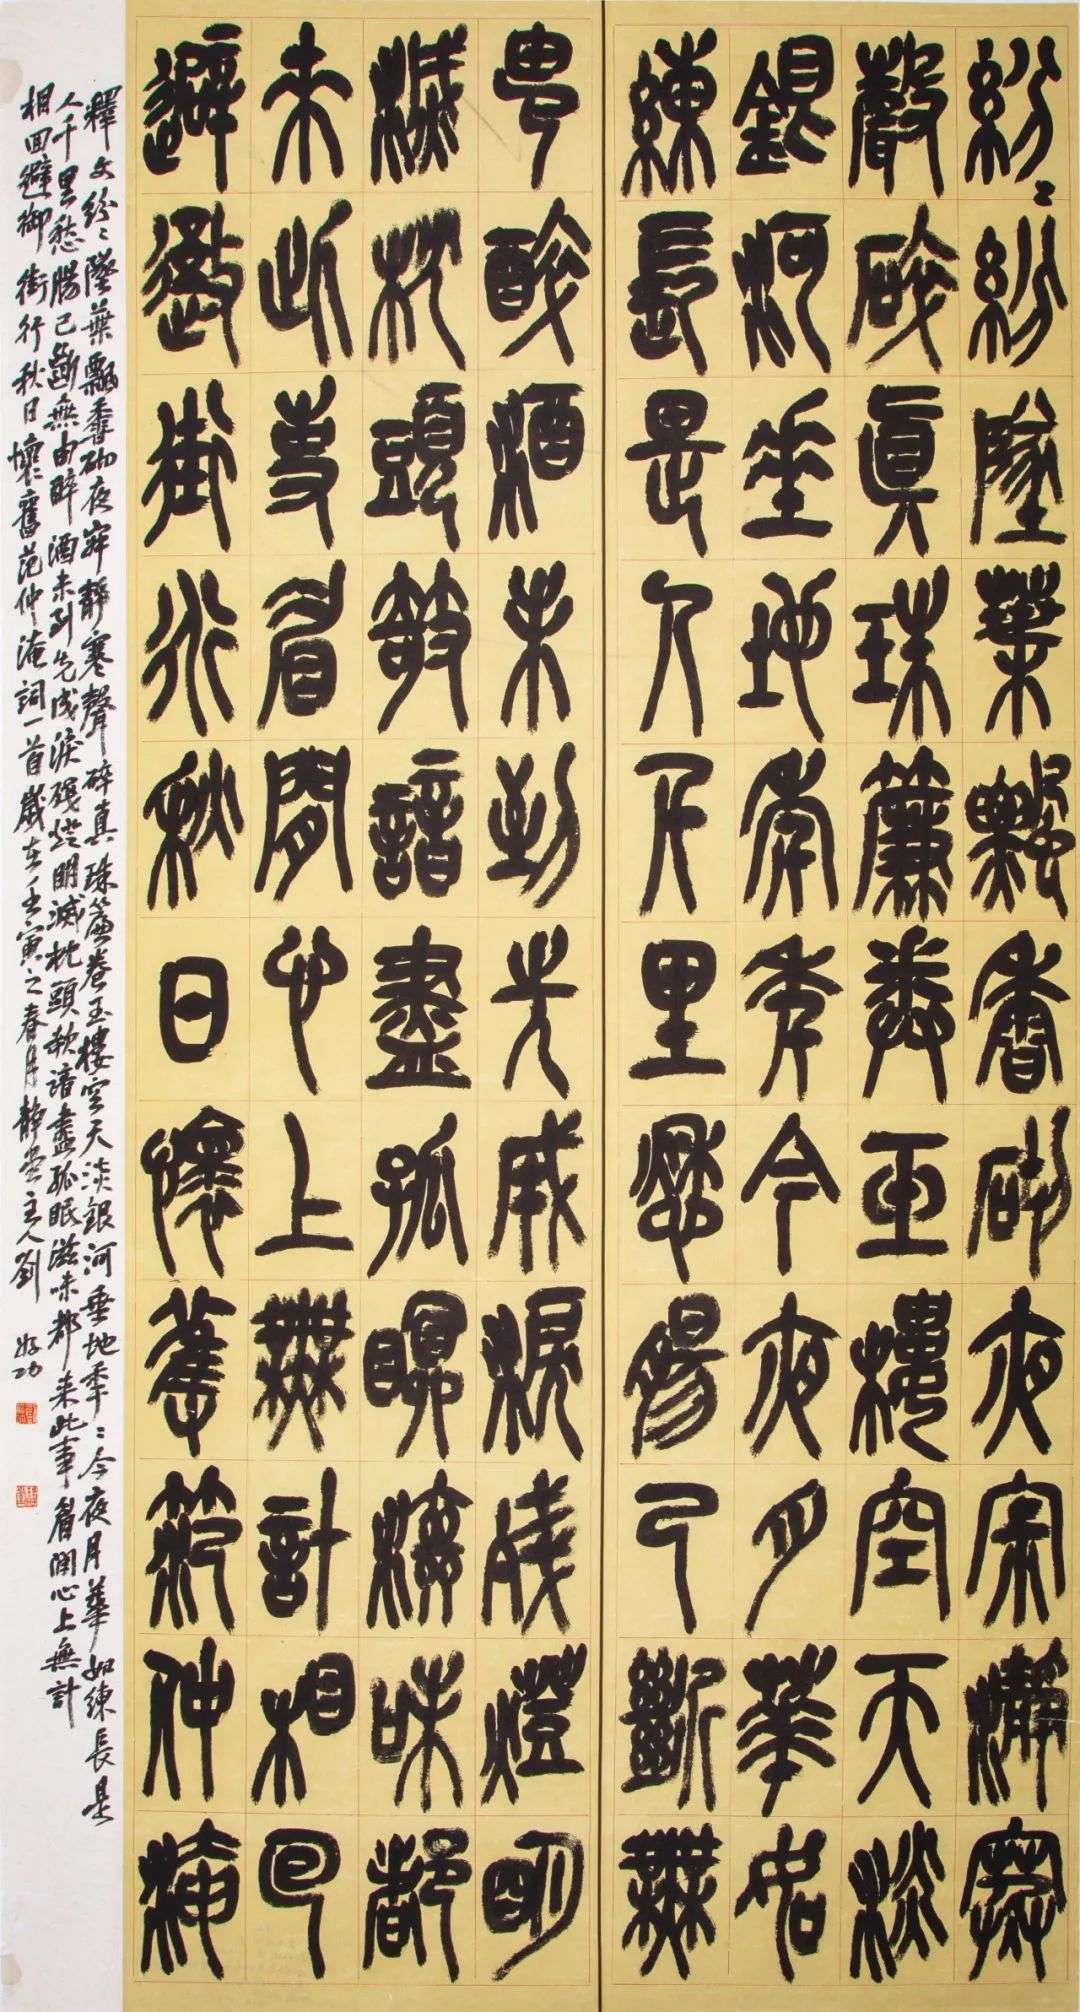 紛〻紛墜葉飄香砌夜寂靜寒
聲碎真珠簾卷玉樓空天淡
銀河垂地年年今夜月華如
練長是人千里愁腸已斷無
由醉酒未到先成淚殘燈明
滅枕頭欹諳盡孤眠滋味都
來此事眉間心上無計相回
避御街行秋日懷舊范仲淹
釋文紛〻墜葉飄香砌夜寂靜寒聲碎真珠簾卷玉樓空天淡銀河垂地年〻今夜月華如練長是
人千里愁腸已斷無由醉酒未到先成淚殘燈明滅枕頭欹諳盡孤眠滋味都來此事眉間心上無計
相回避御街行秋日懷舊范仲淹詞一首歲在壬寅之春月靜堂主人劉